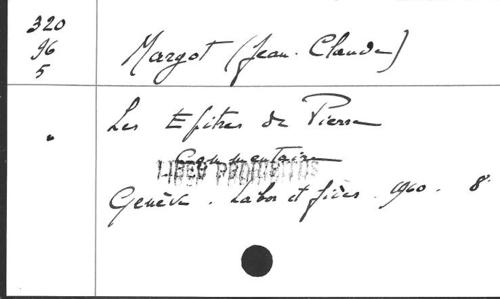 320
96
5
Margot (Jean-Claude)
Les Epitres de Pierre
Commentaire
LIBER PROHIBITUS
Genève. Labor et fides. 1960. 8°